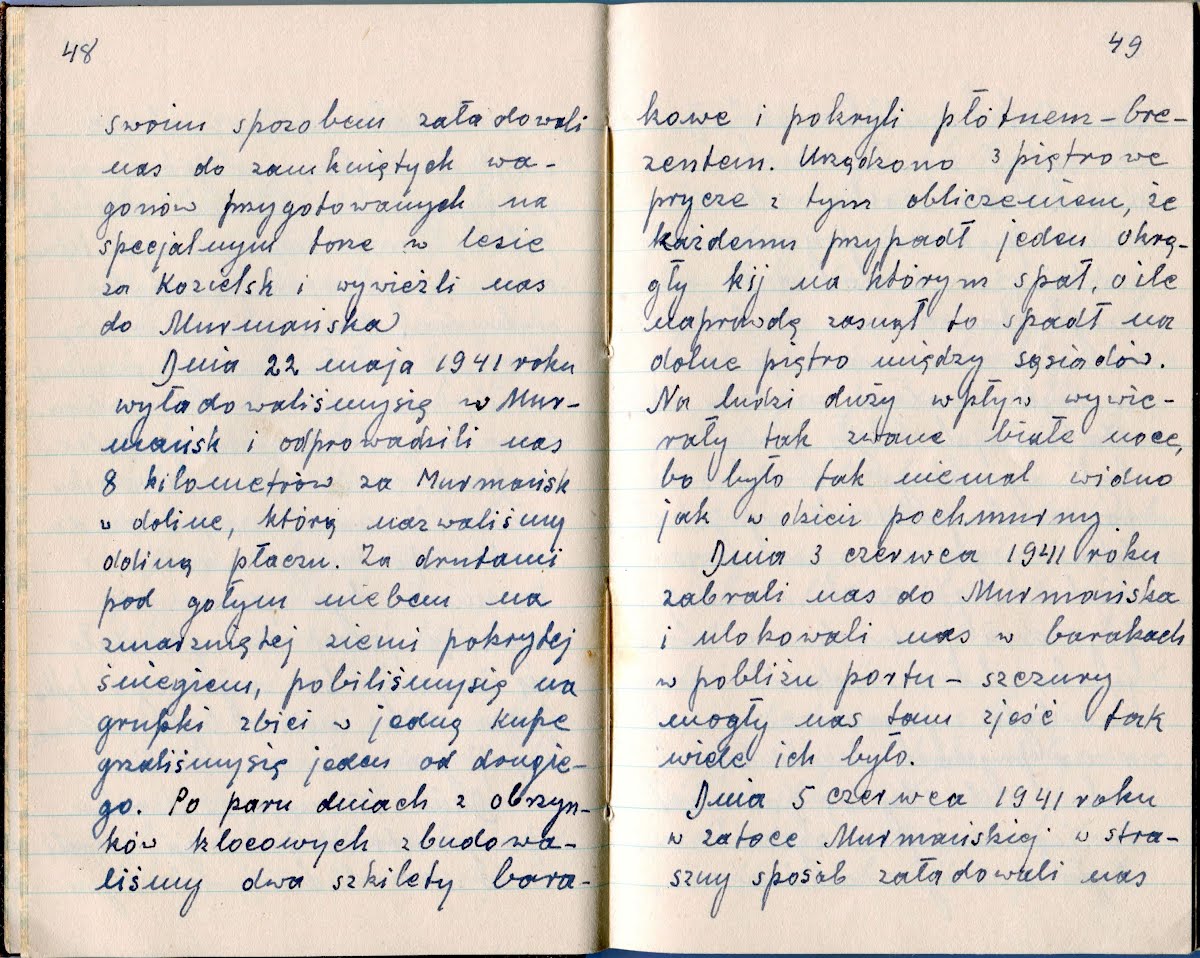 48
swoim sposobem załadowali
nas do zamkniętych wa-
gonów przygotowanych na
specjalnym torze w lesie
za Kozielsk i wywieźli nas
do Murmańska
Dnia 22 maja 1941 roku
wyładowaliśmysię w Mur-
mańsk i odprowadzili nas
8 kilometrów za Murmańsk
w dolinę, którą nazwaliśmy
doliną płaczu. Za drutami
pod gołym niebem na
zmarzniętej ziemi pokrytej
śniegiem, pobiliśmysię na
grupki zbici w jedną kupę
grzaliśmysię jeden od drugie-
go. Po paru dniach z obrzyn-
ków klocowych zbudowa-
liśmy dwa szkilety bara-
49
kowe i pokryli płótnem-bre-
zentem. Urządzono 3 piętrowe
prycze z tym obliczeniem, że
każdemu przypadł jeden okrą-
gły kij na którym spał, o ile
naprawdę zasnął to spadł na
dolne piętro między sąsiadów.
Na ludzi duży wpływ wywie-
rały tak zwane białe noce,
bo było tak niemal widno
jak w dzień pochmurny
Dnia 3 czerwca 1941 roku
zabrali nas do Murmańska
i ulokowali nas w barakach
w pobliżu portu - szczury
mogły nas tam zjeść tak
wiele ich było.
Dnia 5 czerwca 1941 roku
w zatoce Murmańskiej w stra-
szny sposób załadowali nas